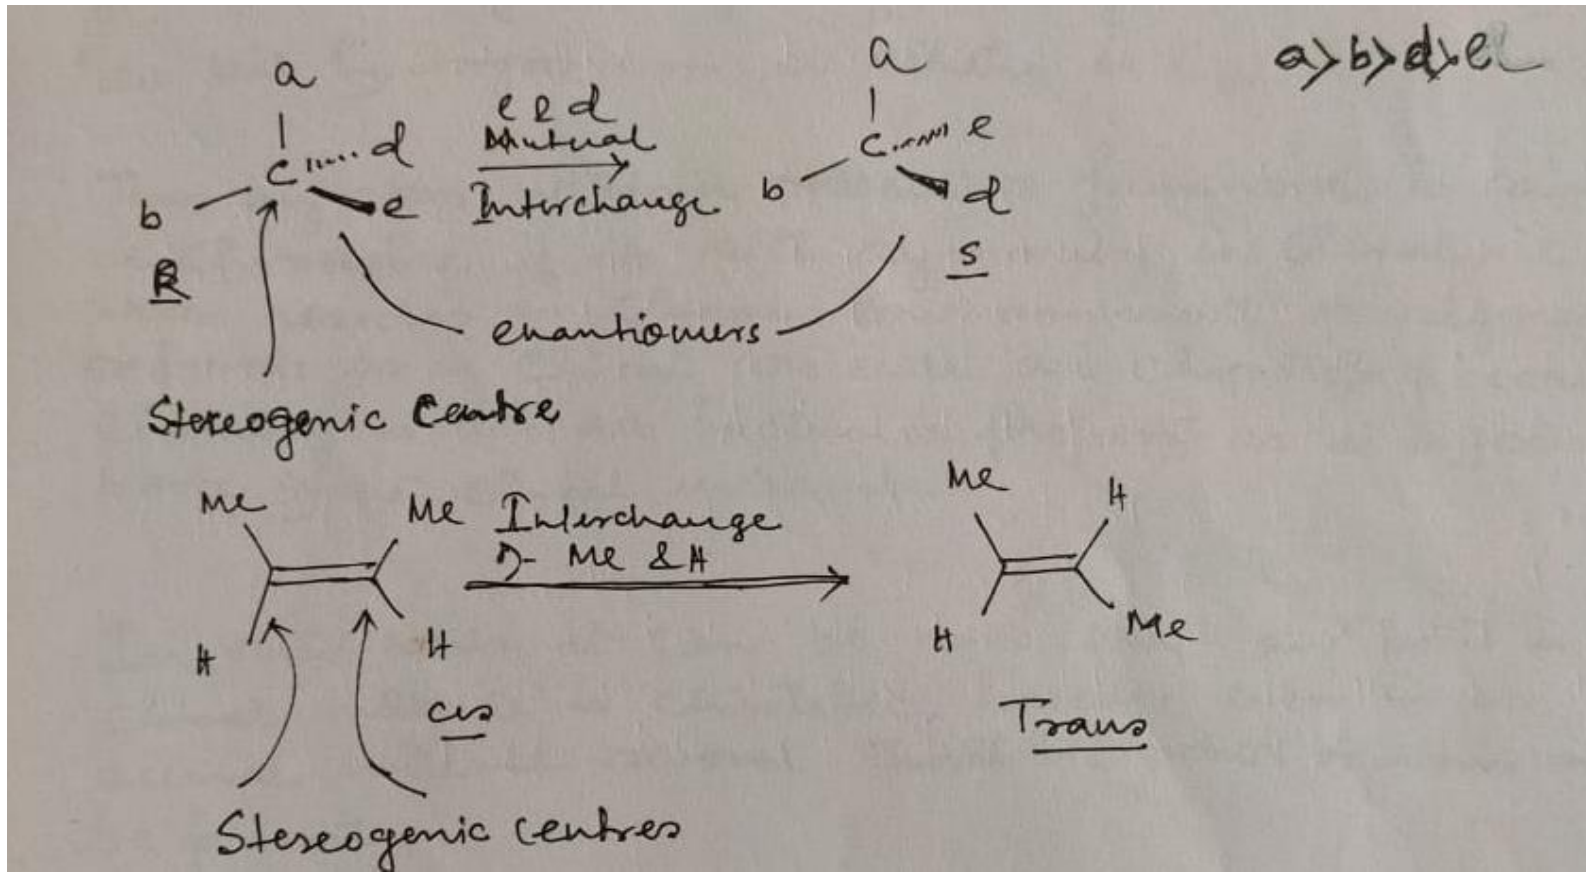 a
a
a>b>d>e
e & d
Mutual
Interchange
C
d
b
e
R
C
e
b
d
S
enantiomers
Stereogenic Centre
Me
Me
H
H
cis
Interchange
Me & H
Me
H
H
Me
Trans
Stereogenic centres